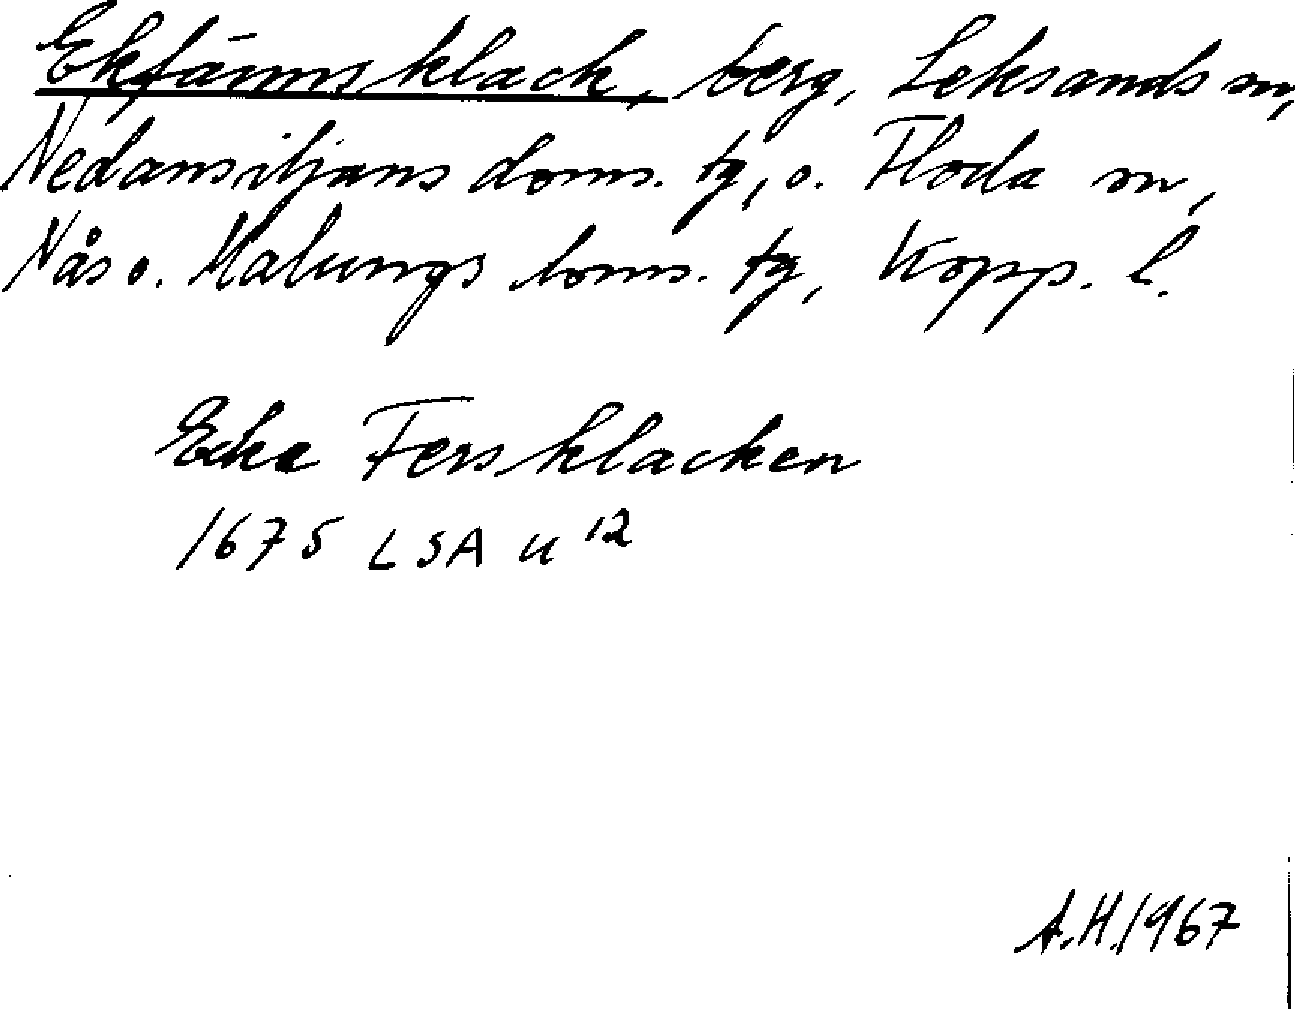 Ekfännsklack, berg, Leksands sn,
Nedansiljans doms. tg, o. Floda sn,
Nås o. Malungs doms. tg, Kopp. l.
Ecke Fersklacken
1675 LSA U 12
A.H. 1967